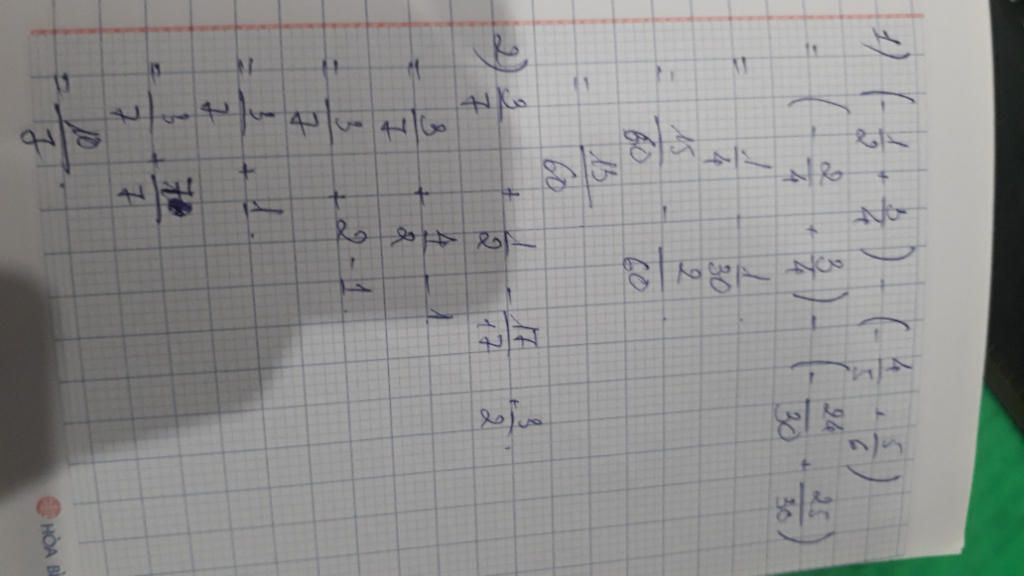 1) (-1/2 + 3/4) - (-4/5 + 5/6)
= (-2/4 + 3/4) - (-24/30 + 25/30)
= 1/4 - 1/30.
= 15/60 - 2/60.
= 13/60
2) 3/7 + 1/2 - 17/17 + 3/2.
= 3/7 + 4/2 - 1
= 3/7 + 2 - 1.
= 3/7 + 1.
= 3/7 + 7/7
= 10/7.
HÒA